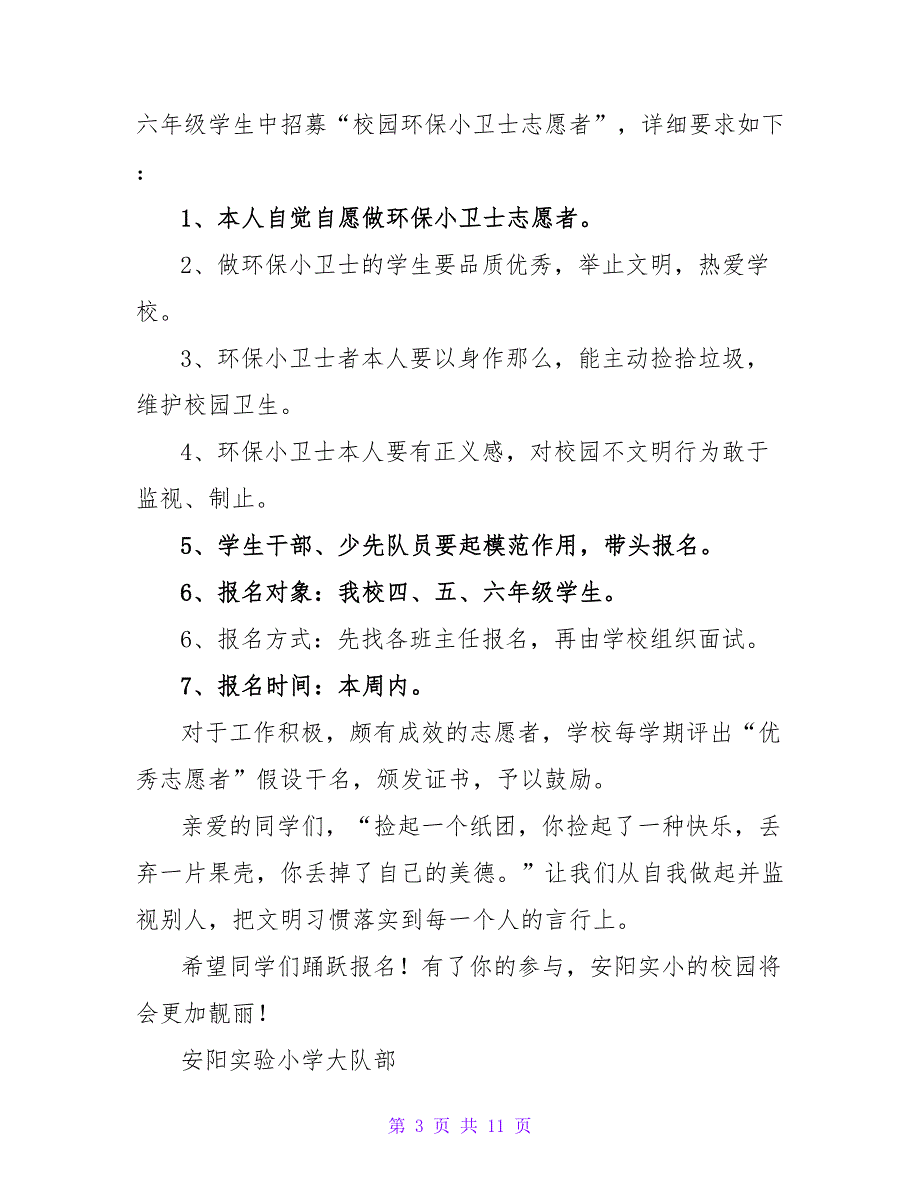 六年级学生中招募“校园环保小卫士志愿者”，详细要求如下
：
1、本人自觉自愿做环保小卫士志愿者。
2、做环保小卫士的学生要品质优秀，举止文明，热爱学
校。
3、环保小卫士者本人要以身作那么，能主动捡拾垃圾，
维护校园卫生。
4、环保小卫士本人要有正义感，对校园不文明行为敢于
监视、制止。
5、学生干部、少先队员要起模范作用，带头报名。
6、报名对象：我校四、五、六年级学生。
6、报名方式：先找各班主任报名，再由学校组织面试。
7、报名时间：本周内。
对于工作积极，颇有成效的志愿者，学校每学期评出“优
秀志愿者”假设干名，颁发证书，予以鼓励。
亲爱的同学们，“捡起一个纸团，你捡起了一种快乐，丢
弃一片果壳，你丢掉了自己的美德。”让我们从自我做起并监
视别人，把文明习惯落实到每一个人的言行上。
希望同学们踊跃报名！有了你的参与，安阳实小的校园将
会更加靓丽！
安阳实验小学大队部
第 3 页 共 11 页